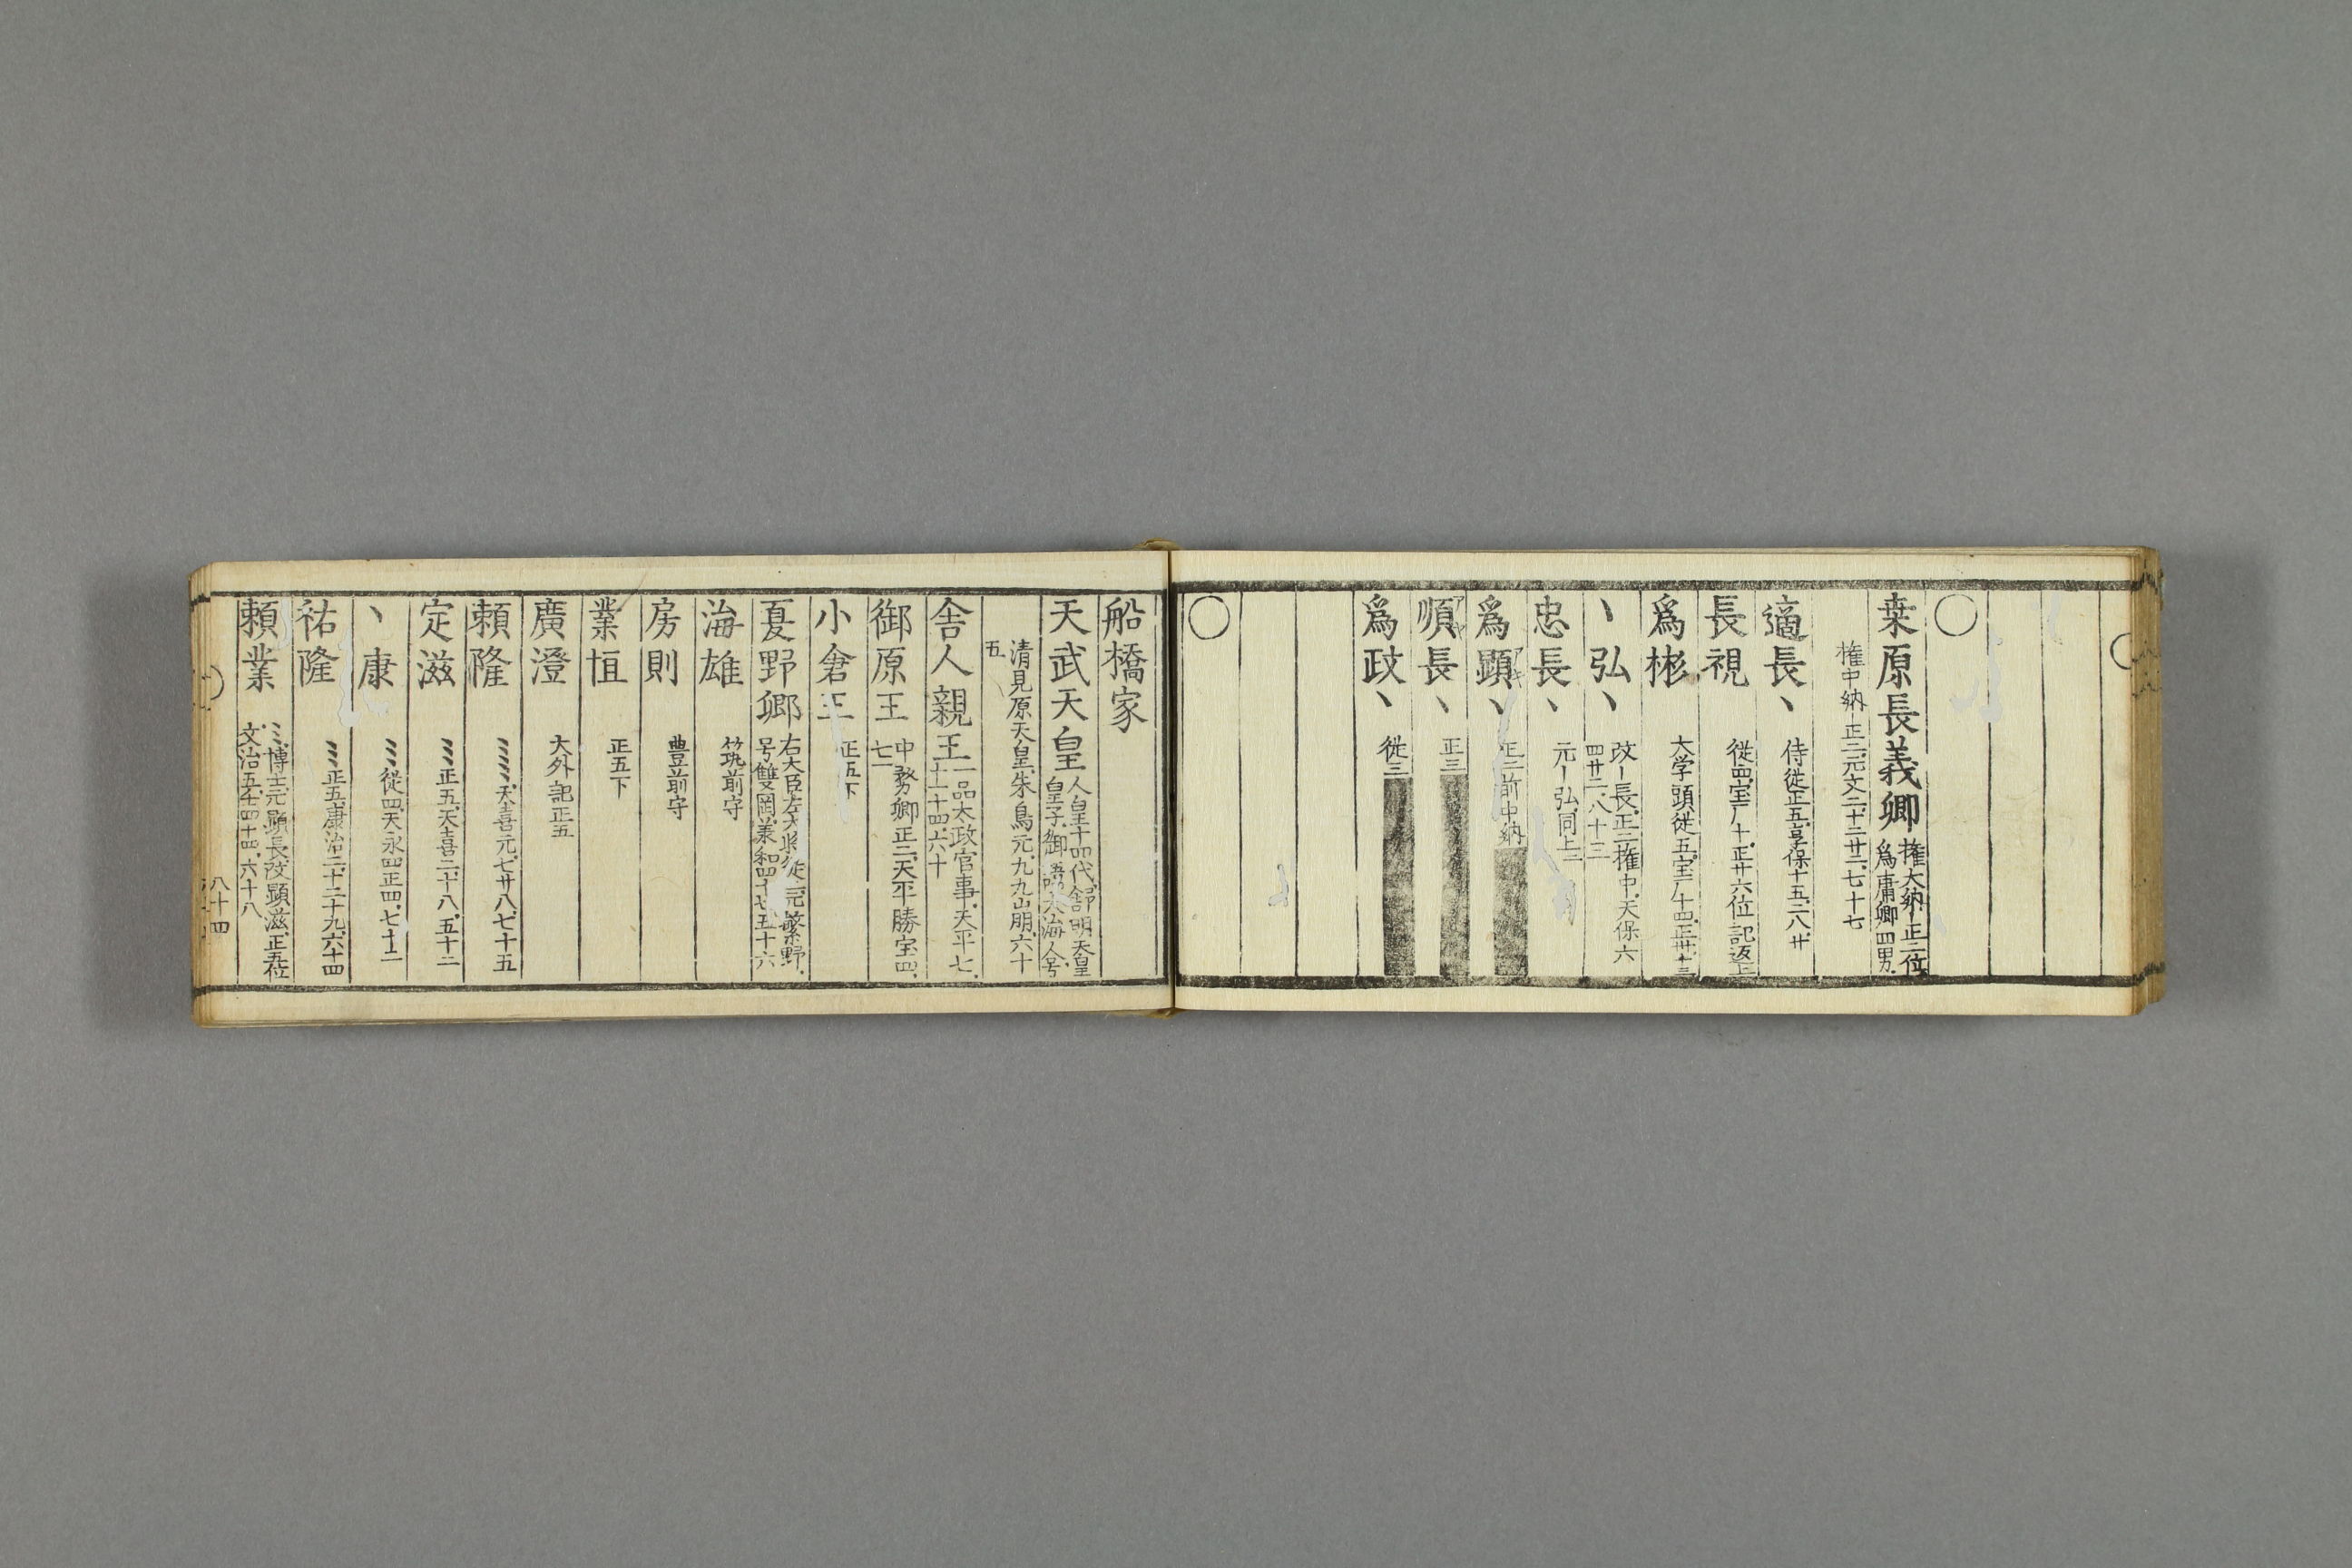 桒原長義卿 権大納正二位
為庸卿四男
権中納正二元文二十二廿二七十七
適長丶 侍従正五享保十五二八廿
長視 従四宝厂十正廿六位記返上
爲彬 大学頭従五宝厂十四正廿十三
丶弘丶 改ー長正二権中天保六
四廿二八十三
忠長丶 元ー弘同上二
爲顕丶 正二前中納
順長丶 正三
爲政丶 従三
船橋家
天武天皇 人皇十四代舒明天皇
皇子御大海人
清見原天皇朱鳥元九九山朋六十
五
舎人親王 一品太政官事天平七
十一十四六十
御原王 中務卿正二天平勝宝四
七一
小倉王 正五下
夏野卿 右大臣左大将従二元繁野
号雙岡兼和四十七五十六
海雄 筑前守
房則 豊前守
業恒 正五下
廣澄 大外記正五
頼隆 ミミ天喜元七廿八七十五
定滋 ミミ正五天喜二十八五十二
丶康 ミミ従四天永四正四七十二
祐隆 ミミ正五康治二十二十九六十四
頼業 ミミ博士元顕長改顕滋正五位
文治五壬四十四六十八
八十四